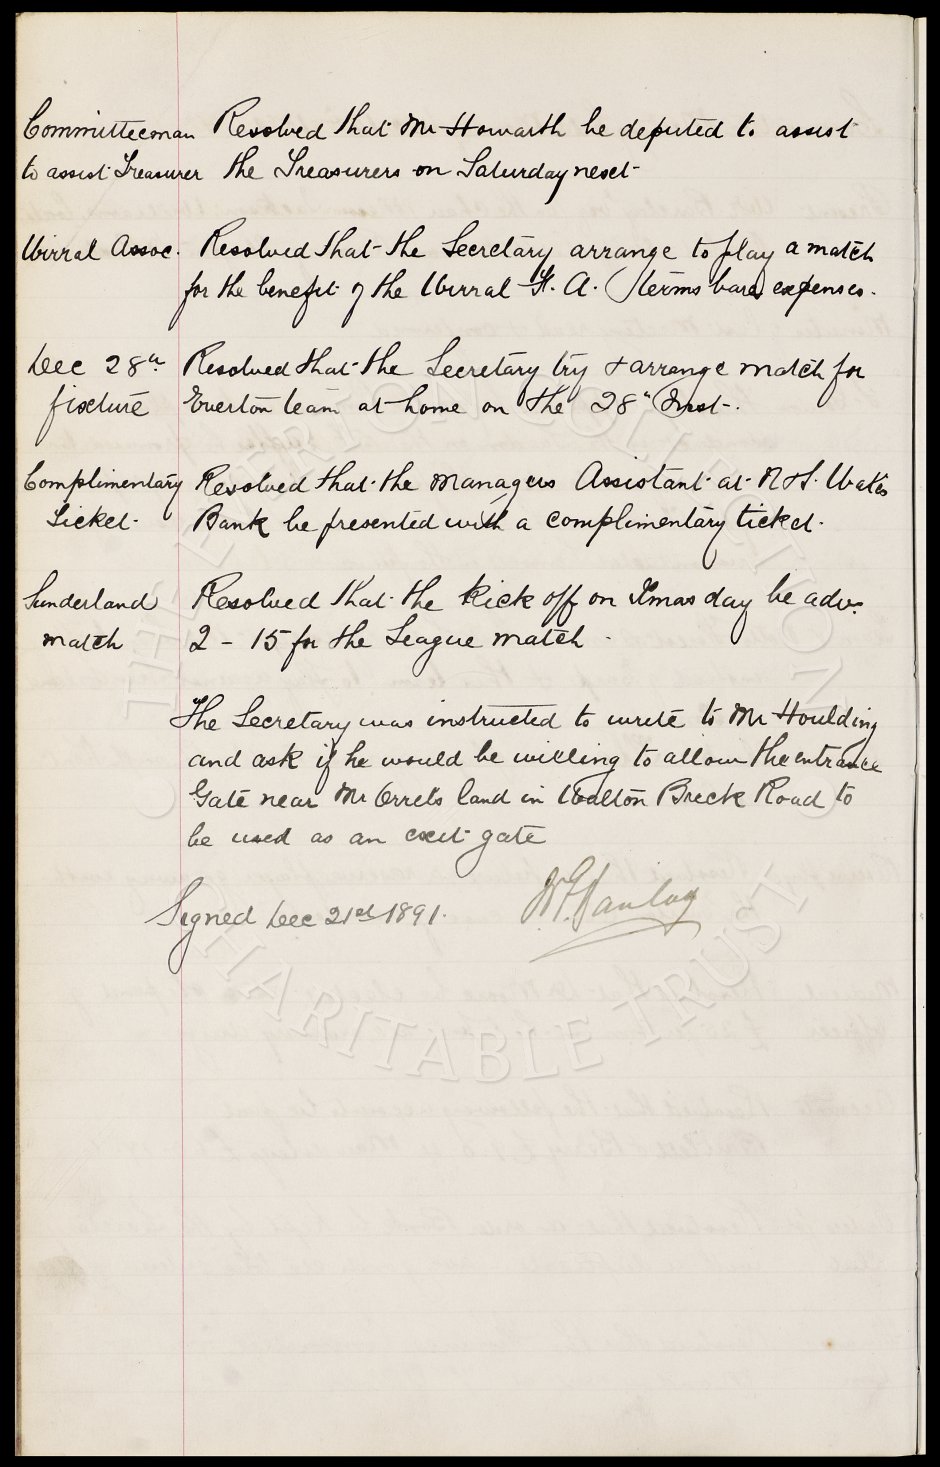 Committeeman Resolved that Mr Howarth be deputed to assist
to assist Treasurer the Treasurers on Saturday next
Wirral Assoc. Resolved that the Secretary arrange to play a match
for the benefit of the Wirral F. A. (terms bare expenses.
Dec 28th Resolved that the Secretary try & arrange match for
fixture Everton team at home on the 28th Inst.
Complimentary Resolved that the Managers Assistant at N & S. Wales
Ticket Bank be presented with a complimentary ticket.
Sunderland Resolved that the Kick off on Xmas day be adv.
match 2 - 15 for the League match.
The Secretary was instructed to write to Mr Houlding
and ask if he would be willing to allow the entrance
Gate near Mr Orrells land in Walton Breck Road to
be used as an exit gate
Signed Dec 21st 1891.
THE EVERTON COLLECTION
CHARITABLE TRUST